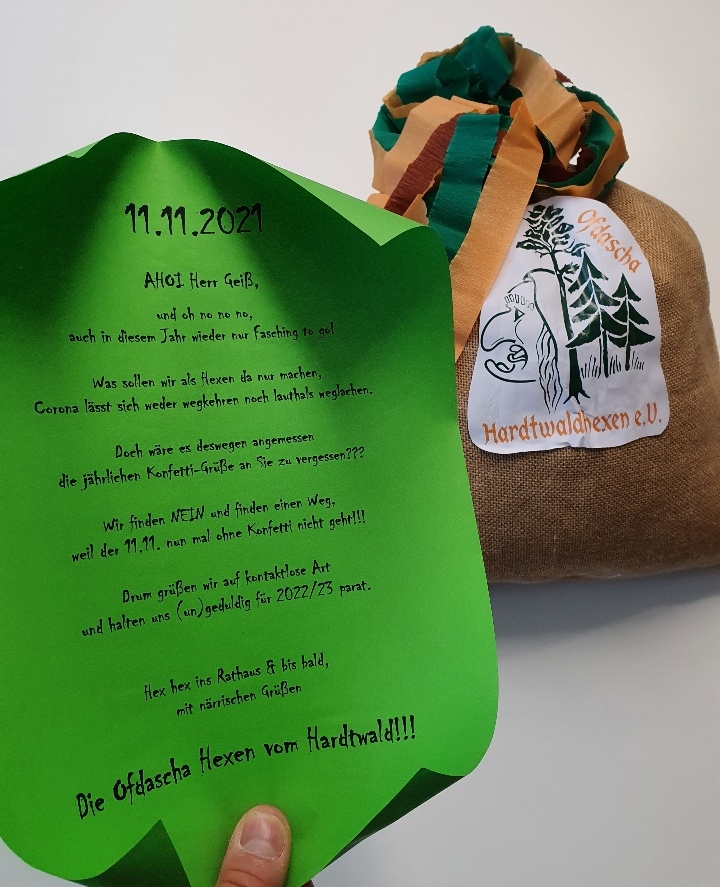 11.11.2021
AHOI Herr Geiß,
und oh no no no,
auch in diesem Jahr wieder nur Fasching to go!
Was sollen wir als Hexen da nur machen,
Corona lässt sich weder wegkehren noch lauthals weglachen.
Doch wäre es deswegen angemessen
die jährlichen Konfetti-Grüße an Sie zu vergessen???
Wir finden NEIN und finden einen Weg,
weil der 11.11. nun mal ohne Konfetti nicht geht!!!
Drum grüßen wir auf kontaktlose Art
und halten uns (un)geduldig für 2022/23 parat.
Hex hex ins Rathaus & bis bald,
mit närrischen Grüßen
Die Ofdascha Hexen vom Hardtwald!!!
Ofdascha
Hardtwaldhexen e.V.